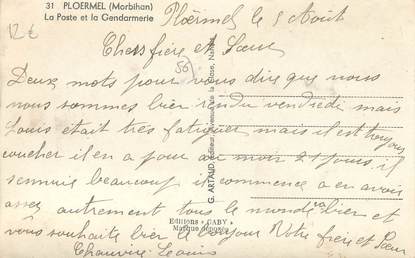 31 PLOERMEL (Morbihan)
La Poste et la Gendarmerie
12 €
Ploërmel le 5 Août
Chers frère et Sœur
56
Deux mots pour vous dire que nous
nous sommes bien rendu vendredi mais
Louis était très fatiguer mais il est toujour
coucher il en a pour au moin 21 jours il
sennuie beaucoup il commence a en avoir
assez autrement tous le monde va bien et
vous souhaite bien le bonjour Votre frère et Sœur
Chauvin Louis
G. ARTAUD, Éditeur, Nantes
Editions « GABY »
Marque déposée